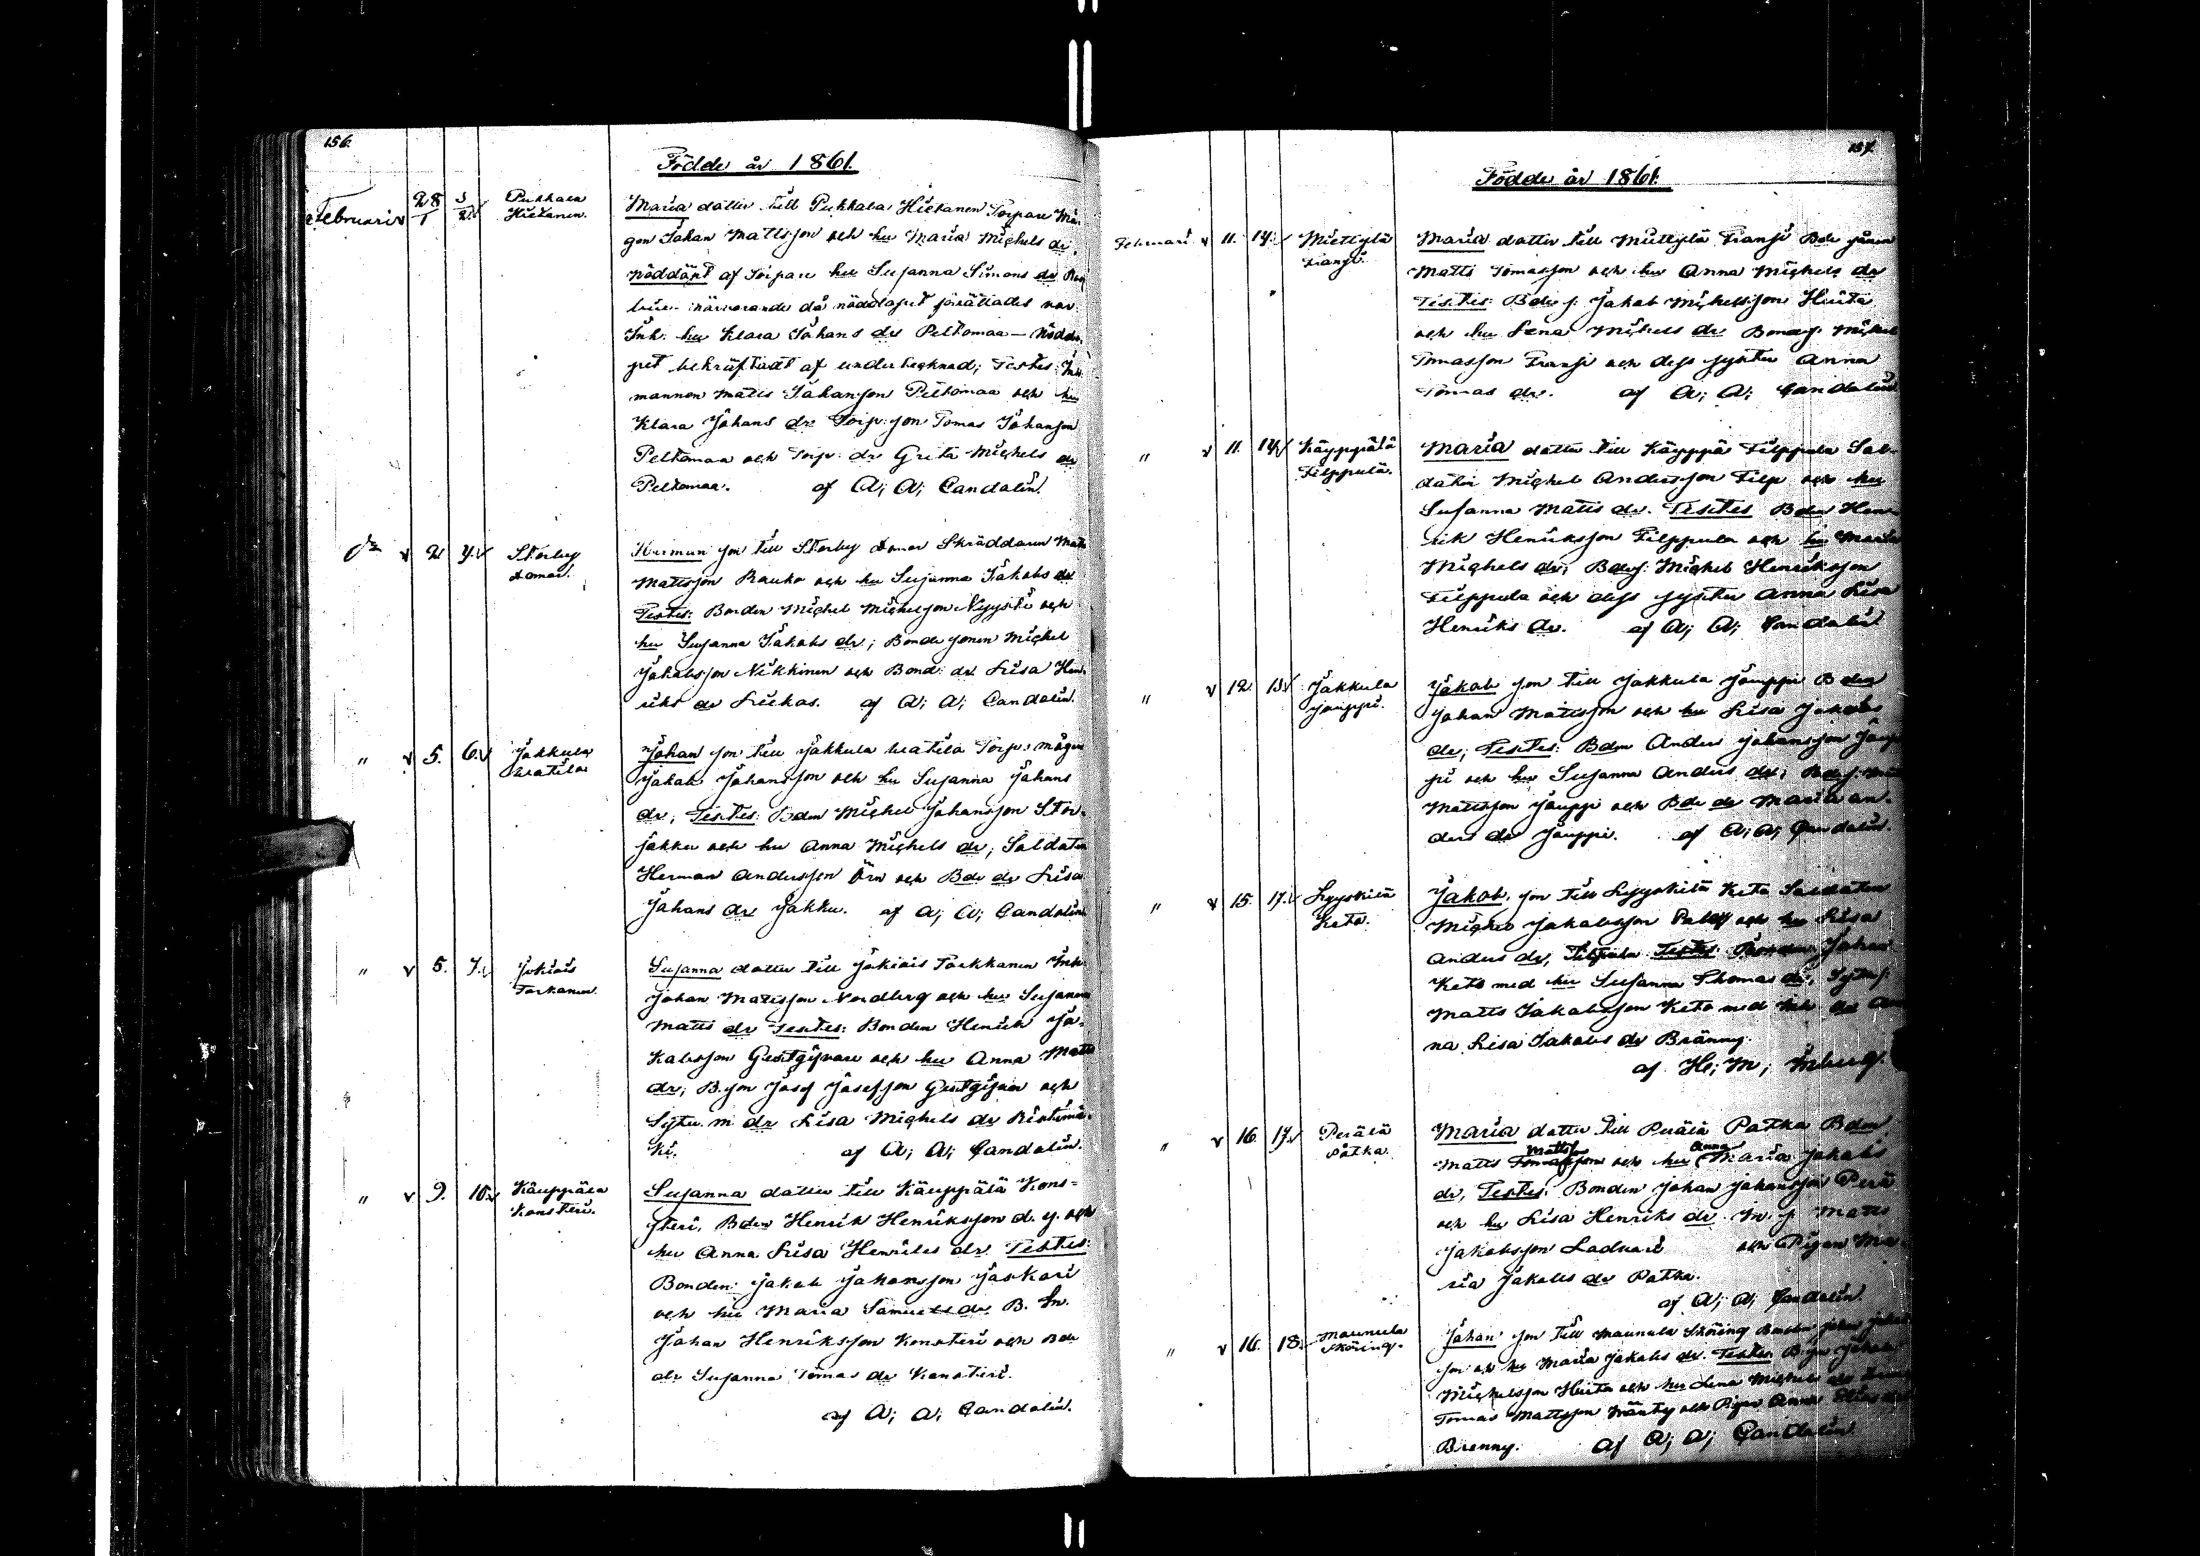 156.
Födde år 1861.
Februari v 28/1 3/2 v Pukkala Hietanen.
Maria dotter till Pukkala Hietanen Torpare Må-
gen Johan Mattsson och hu Maria Michels dr,
nöddöpt af Torpare hu Susanna Simons dr
närvarande då nöddopet förättades var
Inh. hu Klara Johans dr Peltomaa — Nöddo-
pet bekräftadt af undertecknad; Testes: In-
mannen Matts Johansson Peltomaa och hu
Klara Johans dr Torp: son Tomas Johansson
Peltomaa och Torp: dr Greta Michels dr
Peltomaa. af A; A; Candolin.
v 2 7. v Storby
Herman son till Storby Skräddaren Matts
Mattsson Rauko och hu Susanna Jakobs dr
Testes: Bonden Michel Michelsson Nyysti och
hu Susanna Jakobs dr; Bonde sonen Michel
Jakobsson Nikkinen och Bond: dr Lisa Hen-
riks dr Liukas. af A; A; Candolin.
" v 5. 6. v Jakkula
Johan son till Jakkula Torp: mågen
Jakob Johansson och hu Susanna Johans
dr; Testes: Bdn Michel Johansson Stor-
jakku och hu Anna Michels dr; Soldaten
Herman Andersson Örn och Bde dr Lisa
Johans dr Jakku. af A; A; Candolin
" v 5. 7. v Jokiais Torkanen.
Susanna dotter till Jokiais Torkkanen Inh.
Johan Mattsson Nordberg och hu Susanna
Matts dr Testes: Bonden Henrik Ja-
kobsson Gästgifvare och hu Anna Matts
dr; B. son Josef Josefsson Gästgifvare och
Sytn. m dr Lisa Michels dr Ristimä-
ki. af A; A; Candolin.
" v 9. 10. v Käuppälä Konsteri.
Susanna dotter till Käuppälä Kons-
steri, Bden Henrik Henriksson d. y. och
hu Anna Lisa Henriks dr Testes:
Bonden: Jakob Johansson Jaskari
och hu Maria Samuels dr B. Sn.
Johan Henriksson Konsteri och Bde
dr Susanna Tomas dr Konsteri.
af A; A; Candolin.
157.
Födde år 1861.
Februari v 11. 14. Miettylä Fransi.
Maria dotter till Miettylä Fransi Bde sonen
Matts Tomasson och hu Anna Michels dr
Testes: Bde s: Jakob Michelsson Huita
och hu Lena Michels dr Bondes: Michel
Tomasson Fransi och dess syster Anna
Tomas dr. af A; A; Candolin
" v 11. 14. v Käyppälä Filppula.
Maria dotter till Käyppä Filppula Sol-
daten Michel Andersson Filp och hu
Susanna Matts dr. Testes Bden Hen-
rik Henriksson Filppula och hu Maria
Michels dr; Bdes: Michel Henriksson
Filppula och dess syster Anna Lisa
Henriks dr. af A; A; Candolin
" v 12. 13. v Jakkula Jouppi.
Jakob son till Jakkula Jouppi Bden
Johan Mattsson och hu Lisa Jakobs
dr; Testes: Bdn Anders Johansson Joup-
pi och hu Susanna Anders dr; Bdes:
Mattsson Jouppi och Bde dr Maria An-
ders dr Jouppi. af A; A; Candolin.
" v 15. 17. v Lyyskilä Keto.
Jakob. son till Lyyskilä Keto Soldaten
Michel Jakobsson och hu Lisa
Anders dr, Testes: Bonden Johan
Keto med hu Susanna Thomas dr, Sytns:
Matts Jakobsson Keto med Inh dr An-
na Lisa Jakobs dr Bränny.
af H; M;
" v 16. 17. v Perälä Patka.
Maria dotter till Perälä Patka Bden
Mattss Anna
Matts Tomasson och hu Maria Jakobs
dr, Testes: Bonden Johan Johansson Perä
och hu Lisa Henriks dr. In. s. Matts
Jakobsson och Pigan Ma-
ria Jakobs dr Patka.
af A; A; Candolin.
" v 16. 18. Maunula Sköring.
Johan son till Maunula Sköring Bonden Johan
son och hu Maria Jakobs dr. Testes
Michelsson Huita och hu Lena Michels dr
Tomas Mattsson Mänty och Pigan Anna
Brenny. af A; A; Candolin